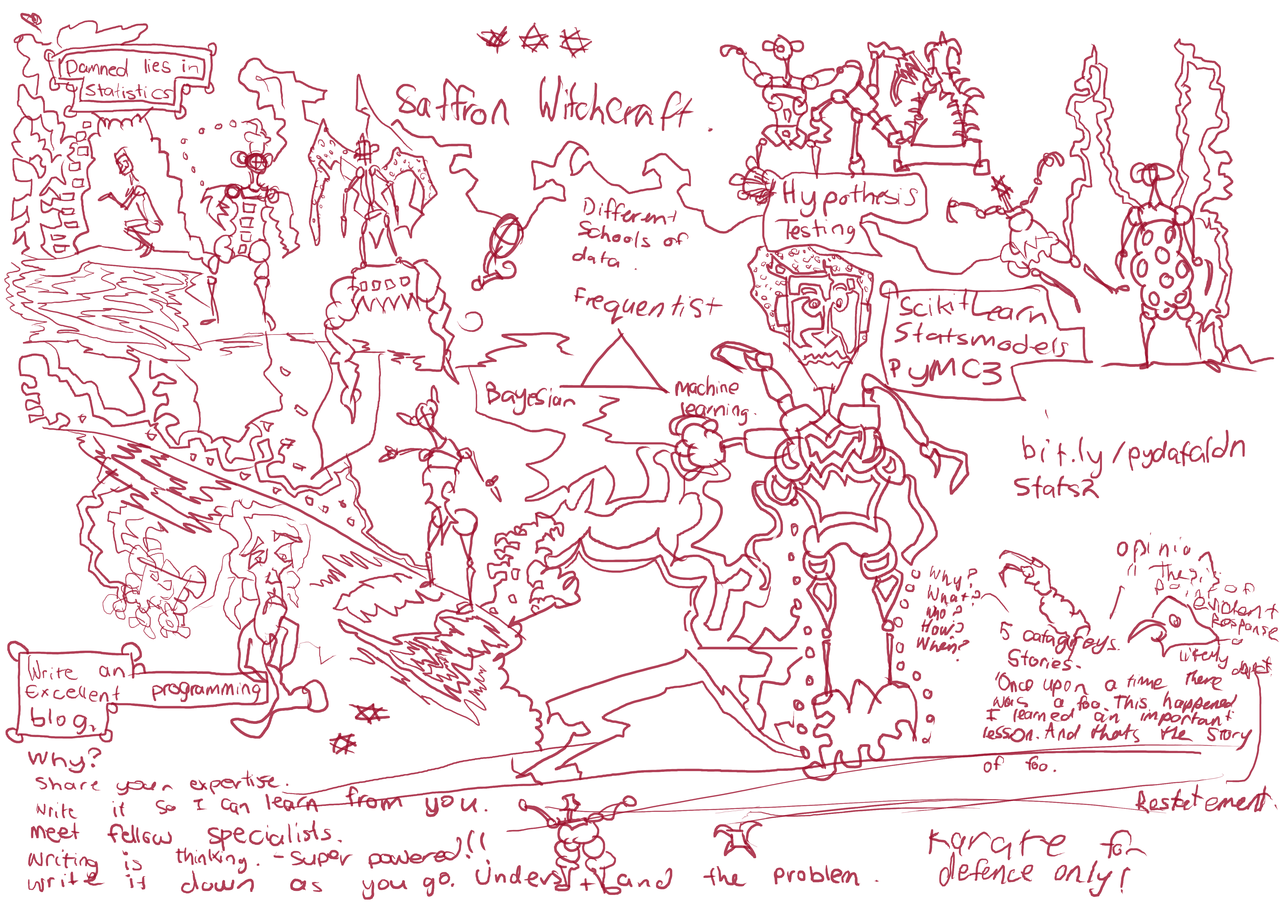 Damned lies in
statistics
Saffron Witchcraft.
Different
Schools of
data.
Frequentist
Bayesian
Machine
learning.
Hypothesis
Testing
Scikit Learn
Statsmodels
PyMC3
bit.ly/pydataldn
Stats2
Why?
What?
Who?
How?
When?
opinion
Thesis
point of
evident
Response
5 catagroys.
Stories.
'Once upon a time there
was a foo. This happened
I learned an important
lesson. And thats the story
of foo.
Restatement.
Write an
Excellent programming
blog.
Why?
Share your expertise.
Write it so I can learn from you.
Meet fellow specialists.
Writing is thinking. - Super powered!!
Write it down as you go. Understand the problem.
Karate for
defence only!